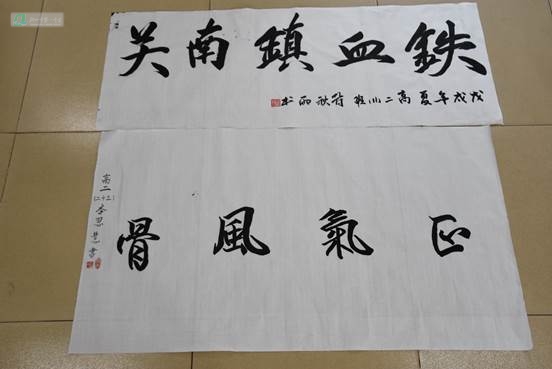 鉄血鎮南关
戊戌年夏高二川班符秋雨书
正氣風骨
高二(二十二)李思慧書